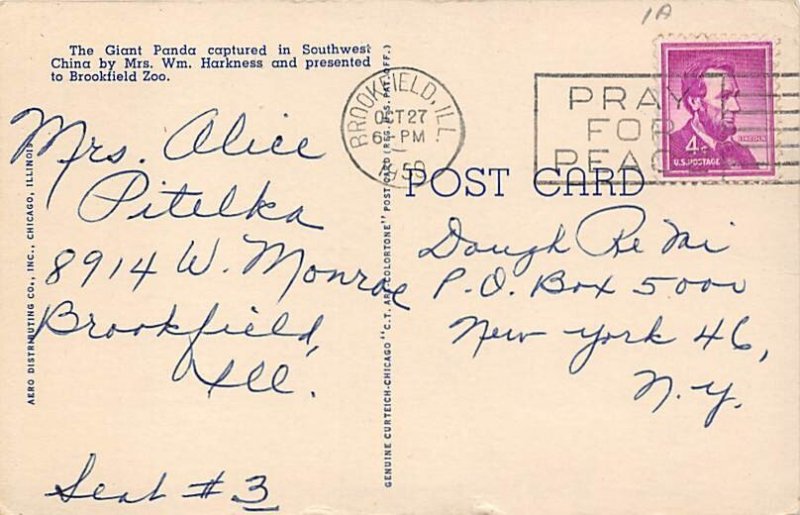 1A
The Giant Panda captured in Southwest
China by Mrs. Wm. Harkness and presented
to Brookfield Zoo.
Mrs. Alice
Pitelka
8914 W. Monroe
Brookfield,
Ill.
Seat # 3
AERO DISTRIBUTING CO., INC., CHICAGO, ILLINOIS
GENUINE CURTEICH-CHICAGO "C.T. ART-COLORTONE" POST CARD (REG. U.S. PAT. OFF.)
BROOKFIELD, ILL.
OCT 27
PM
POST CARD
PRAY
FOR
PEACE
LINCOLN
4¢
U.S. POSTAGE
Dough Re Mi
P.O. Box 5000
New York 46,
N.Y.